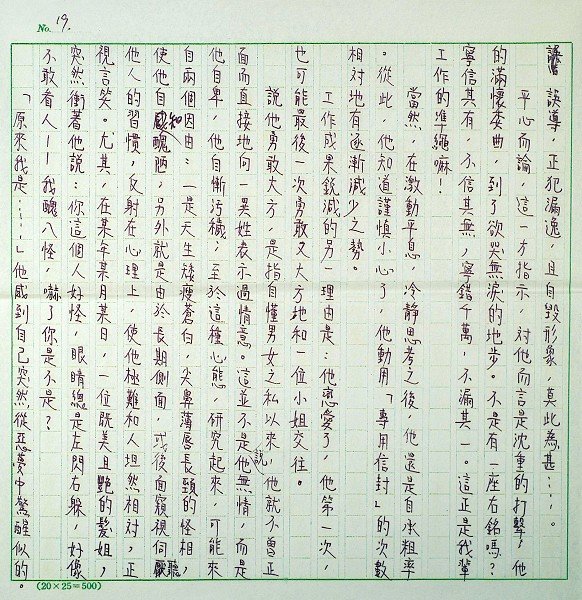 No. 19.
誤導,正犯漏逸,且自毀形象,莫此為甚……。
平心而論,這一方指示,對他而言是沈重的打擊,他
的滿懷委曲,到了欲哭無淚的地步。不是有一座右銘嗎?
寧信其有,不信其無,寧錯千萬,不漏其一。這正是我輩
工作的準繩嘛!
當然,在激動平息,冷靜思考之後,他還是自承粗率
。從此,他知道謹慎小心了,他動用「專用信封」的次數
相對地有逐漸減少之勢。
工作成果銳減的另一理由是:他戀愛了,他第一次,
也可能最後一次勇敢又大方地和一位小姐交往。
說他勇敢大方,是指自懂男女之私以來,他就不曾正
面而直接地向一異性表示過情意。這並不是說他無情,而是
他自卑,他自慚污穢;至於這種心態,研究起來,可能來
自兩個因由:一是天生矮瘦蒼白,尖鼻薄唇長頸的怪相,
使他自知醜陋,另外就是由於長期側面,或後面窺視伺聽
他人的習慣,反射在心理上,使他極難和人坦然相對,正
視言笑。尤其,在某年某月某日,一位既美且艷的髮姐,
突然衝著他說:你這個人好怪,眼睛總是左閃右躲,好像
不敢看人——我醜八怪,嚇了你是不是?
「原來我是……」他感到自己突然從惡夢中驚醒似的。
(20×25=500)